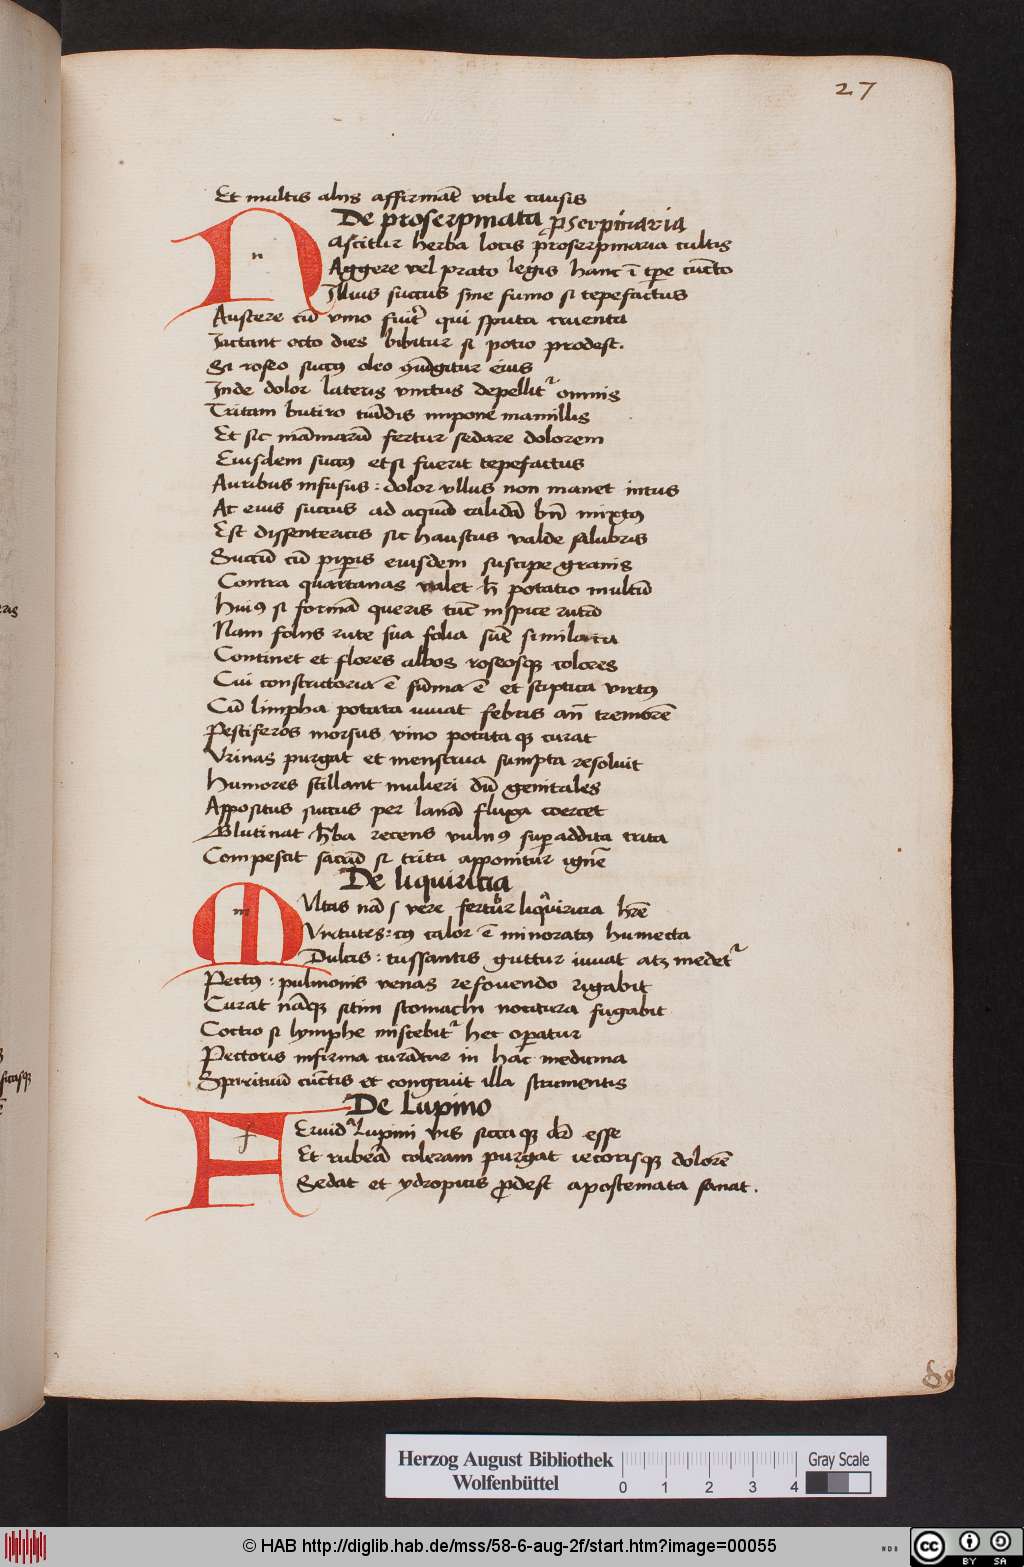 27
Et multis alijs affirmāt vtile causis
De proserpinata p̄serpinaria
Nascitur herba locis proserpinaria cultis
Aggere vel prato legis hanc ī tp̄e cūcto
Illius succus sine fumo si tepefactus
Austere cū vino fuit̄ qui sputa cruenta
Iactant octo dies bibitur si potio prodest.
Si roseo succꝰ oleo eius
Inde dolor lateris vnctus depellitᷣ omnis
Tritam butiro tūidis impone mamillis
Et sic māmarū fertur sedare dolorem
Eiusdem succꝰ etsi fuerit tepefactus
Auribus infusus : dolor vllus non manet intus
At eius succus ad aquā calidā bn̄ mixtꝰ
Est dissentericis sic haustus valde salubris
Succū cū piꝑis eiusdem suscipe granis
Contra quartanas valet h̄ potatio multū
Huiꝰ si formā queris tūc inspice rutā
Nam folijs rute sua folia sūt similata
Continet et flores albos roseosqꝫ colores
Cui constrictoria ē sūma ē et stiptica virtꝰ
Cū limpha potata iuuat febris an̄ tremorē
Pestiferos morsus vino potata qꝫ curat
Vrinas purgat et menstrua sumpta resoluit
Humores stillant mulieri dū genitales
Appositus succus per lanā fluxa coercet
Glutinat h̄ba recens vulnꝰ suꝑaddita trita
Compescit sacrū si trita apponitur ignē
De liquiricia
Multas nā s vere fertur liquiricia hr̄e
Virtutes : cꝰ calor ē minoratꝰ humecta
Dulcis : tussantis guttur iuuat atꝫ medetᷣ
Pectꝰ : pulmonis venas refouendo rigabit
Curat nāqꝫ sitim stomachi nocitura fugabit
Coctio si lymphe miscebitᷣ hec oꝑatur
Pectoris infirma curātur in hac medicina
Spirituū cūctis et congruit illa strumentis
De Lupino
Feruidᷣ Lupini vis sicca qꝫ dr̄ esse
Et rubeā coleram purgat iecorisqꝫ dolorē
Sedat et ydropicis ꝓdest apostemata sanat.
Herzog August Bibliothek
Wolfenbüttel
0 1 2 3 4
Gray Scale
© HAB http://diglib.hab.de/mss/58-6-aug-2f/start.htm?image=00055
WDB
cc BY SA